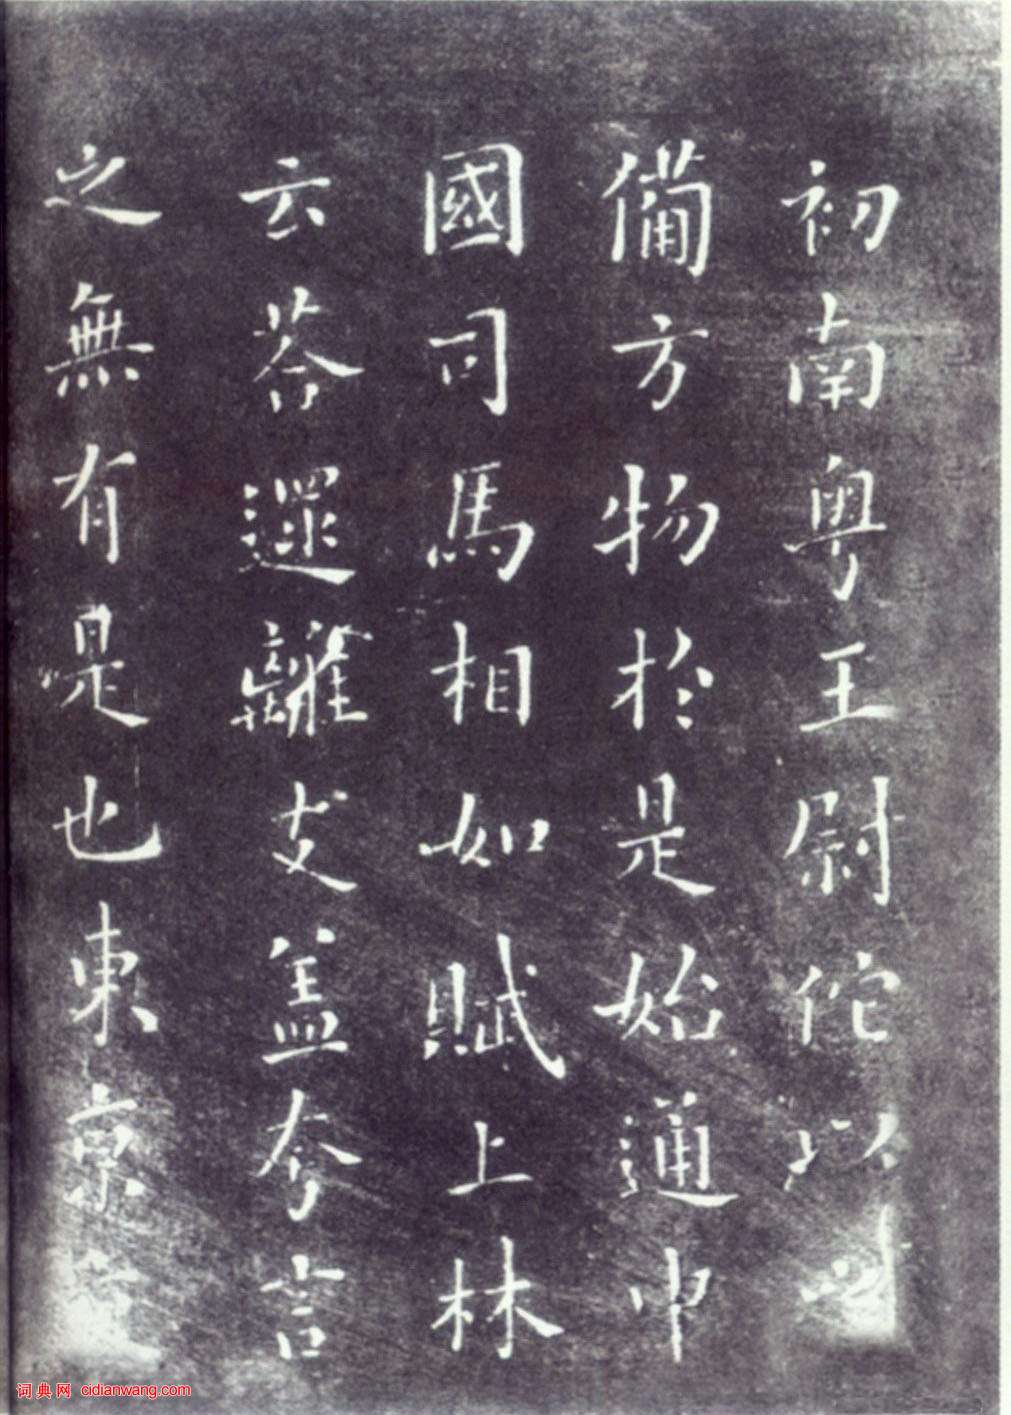 初南粵王尉佗以
備方物於是始通中
國司馬相如賦上林
云荅遝離支盖夸言
之無有是也東京
词典网 cidianwang.com